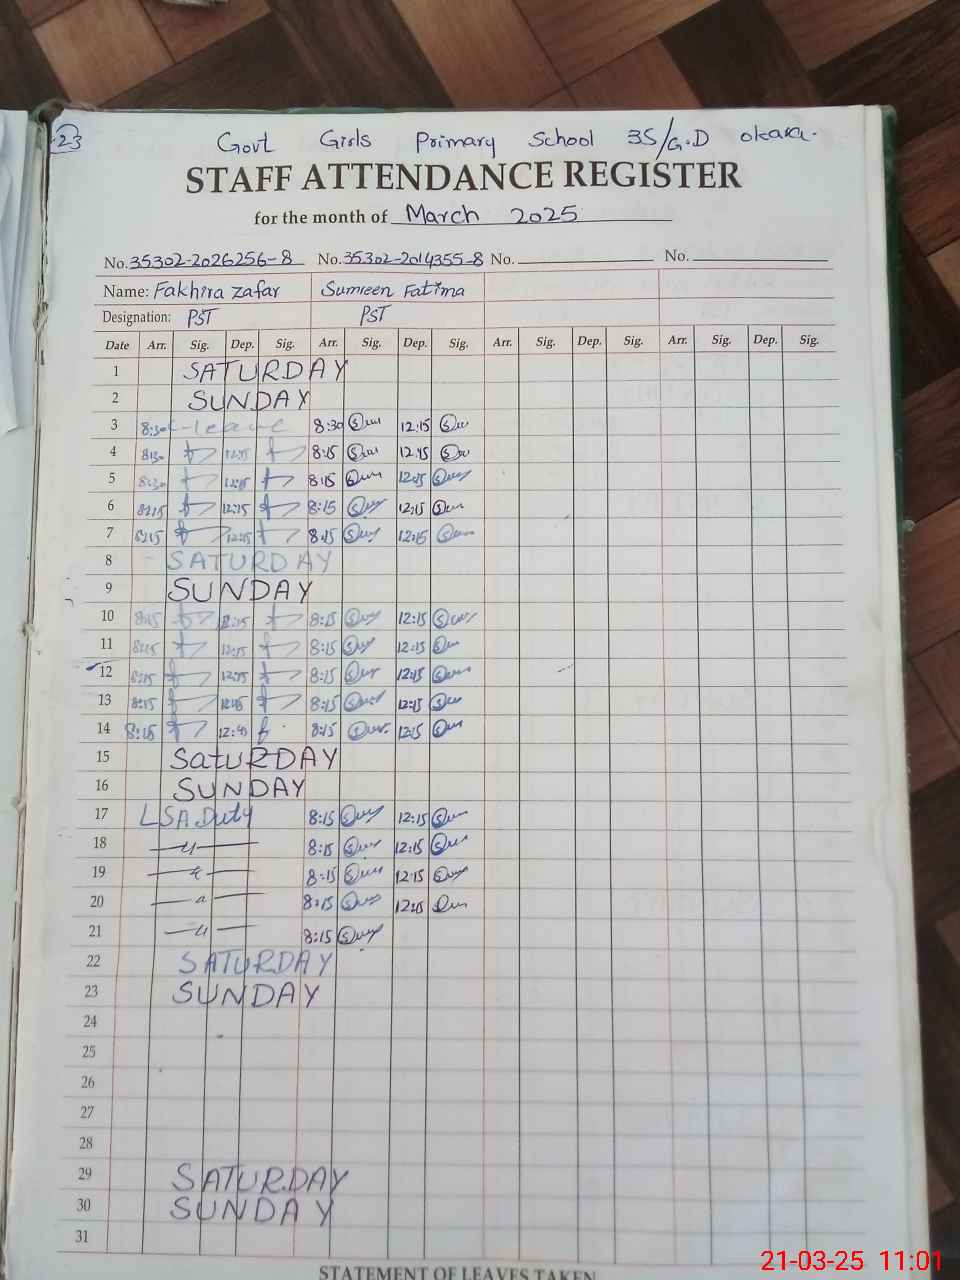 23
Govt Girls Primary School 35/G.D okara.
STAFF ATTENDANCE REGISTER
for the month of March 2025
No. 35302-2026256-8 No. 35302-2014355-8 No. No.
Name: Fakhira Zafar Sumreen Fatima
Designation: PST PST
Date Arr. Sig. Dep. Sig. Arr. Sig. Dep. Sig. Arr. Sig. Dep. Sig. Arr. Sig. Dep. Sig.
1 SATURDAY
2 SUNDAY
3 8:30 C-leave 8:30 12:15
4 8:30 12:15 8:15 12:15
5 8:30 12:15 8:15 12:15
6 8:15 12:15 8:15 12:15
7 8:15 12:15 8:15 12:15
8 SATURDAY
9 SUNDAY
10 8:15 12:15 8:15 12:15
11 8:15 12:15 8:15 12:15
12 8:15 12:15 8:15 12:15
13 8:15 12:15 8:15 12:15
14 8:15 8:15 12:15
15 SatURDAY
16 SUNDAY
17 LSA Duty 8:15 12:15
18 —〃— 8:15 12:15
19 —〃— 8:15 12:15
20 —〃— 8:15 12:15
21 —〃— 8:15
22 SATURDAY
23 SUNDAY
24
25
26
27
28
29 SATURDAY
30 SUNDAY
31
STATEMENT OF LEAVES TAKEN
21-03-25 11:01